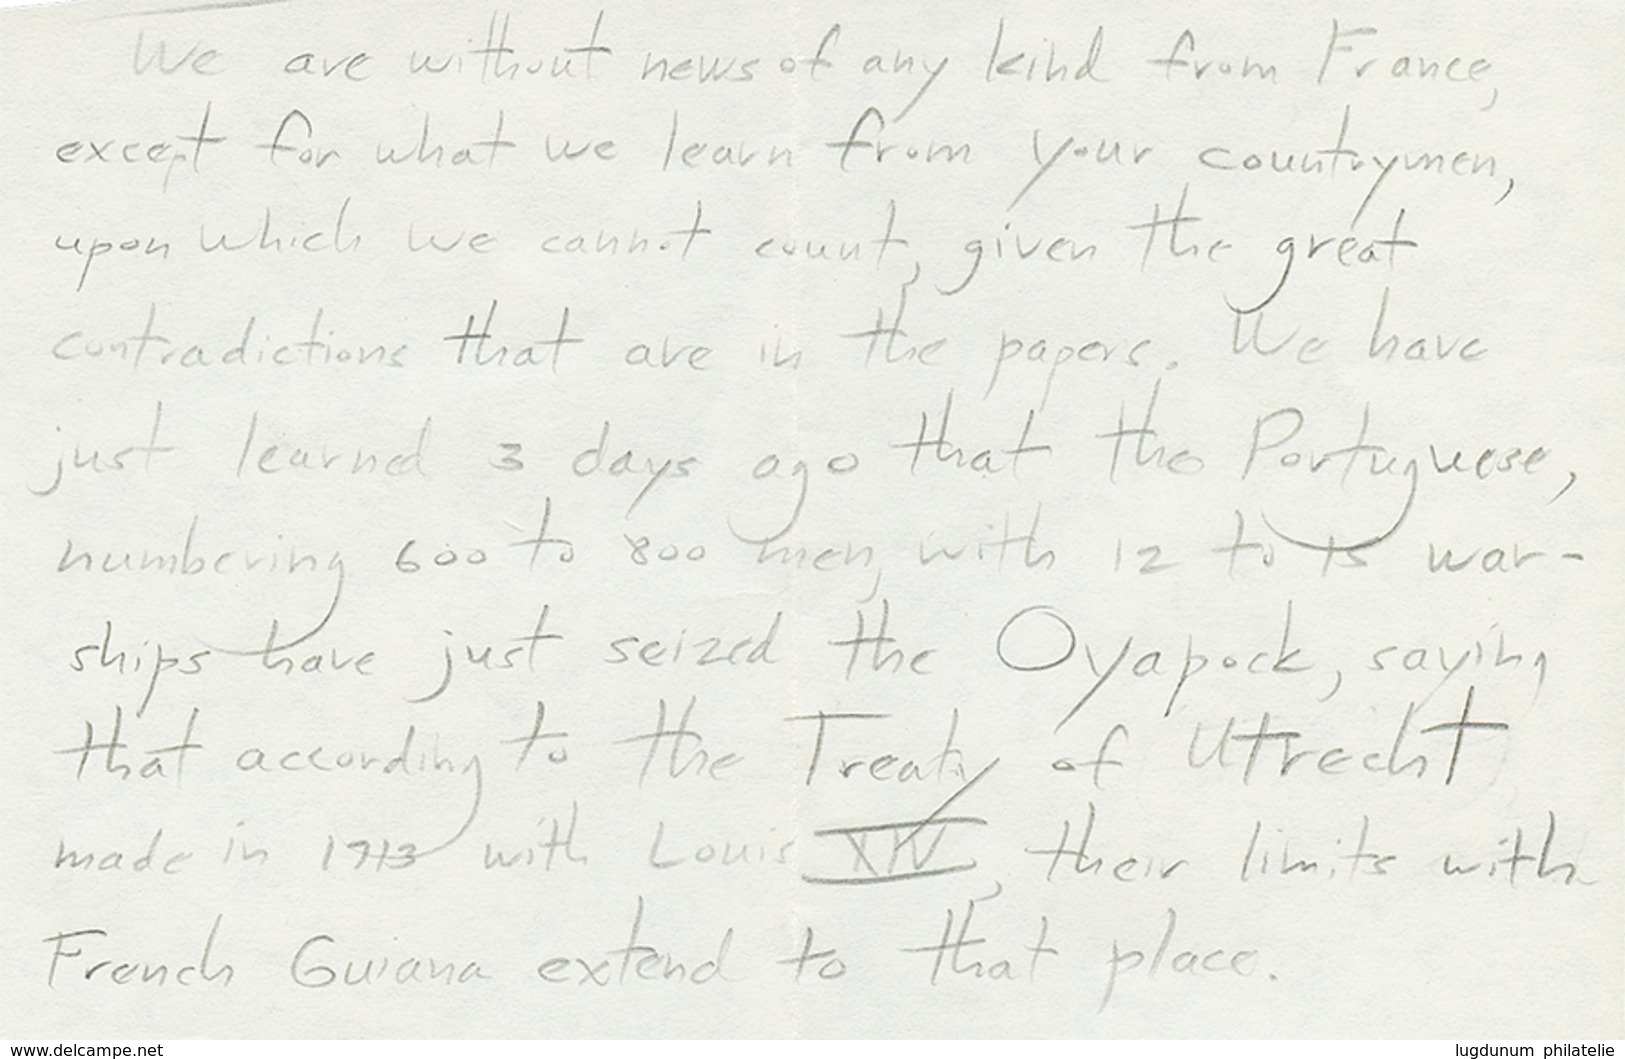 We are without news of any kind from France,
except for what we learn from your countrymen,
upon which we cannot count, given the great
contradictions that are in the papers. We have
just learned 3 days ago that the Portuguese,
numbering 600 to 800 men, with 12 to 15 war-
ships have just seized the Oyapock, saying
that according to the Treaty of Utrecht
made in 1713 with Louis XIV, their limits with
French Guiana extend to that place.
www.delcampe.net
lugdunum philatelie